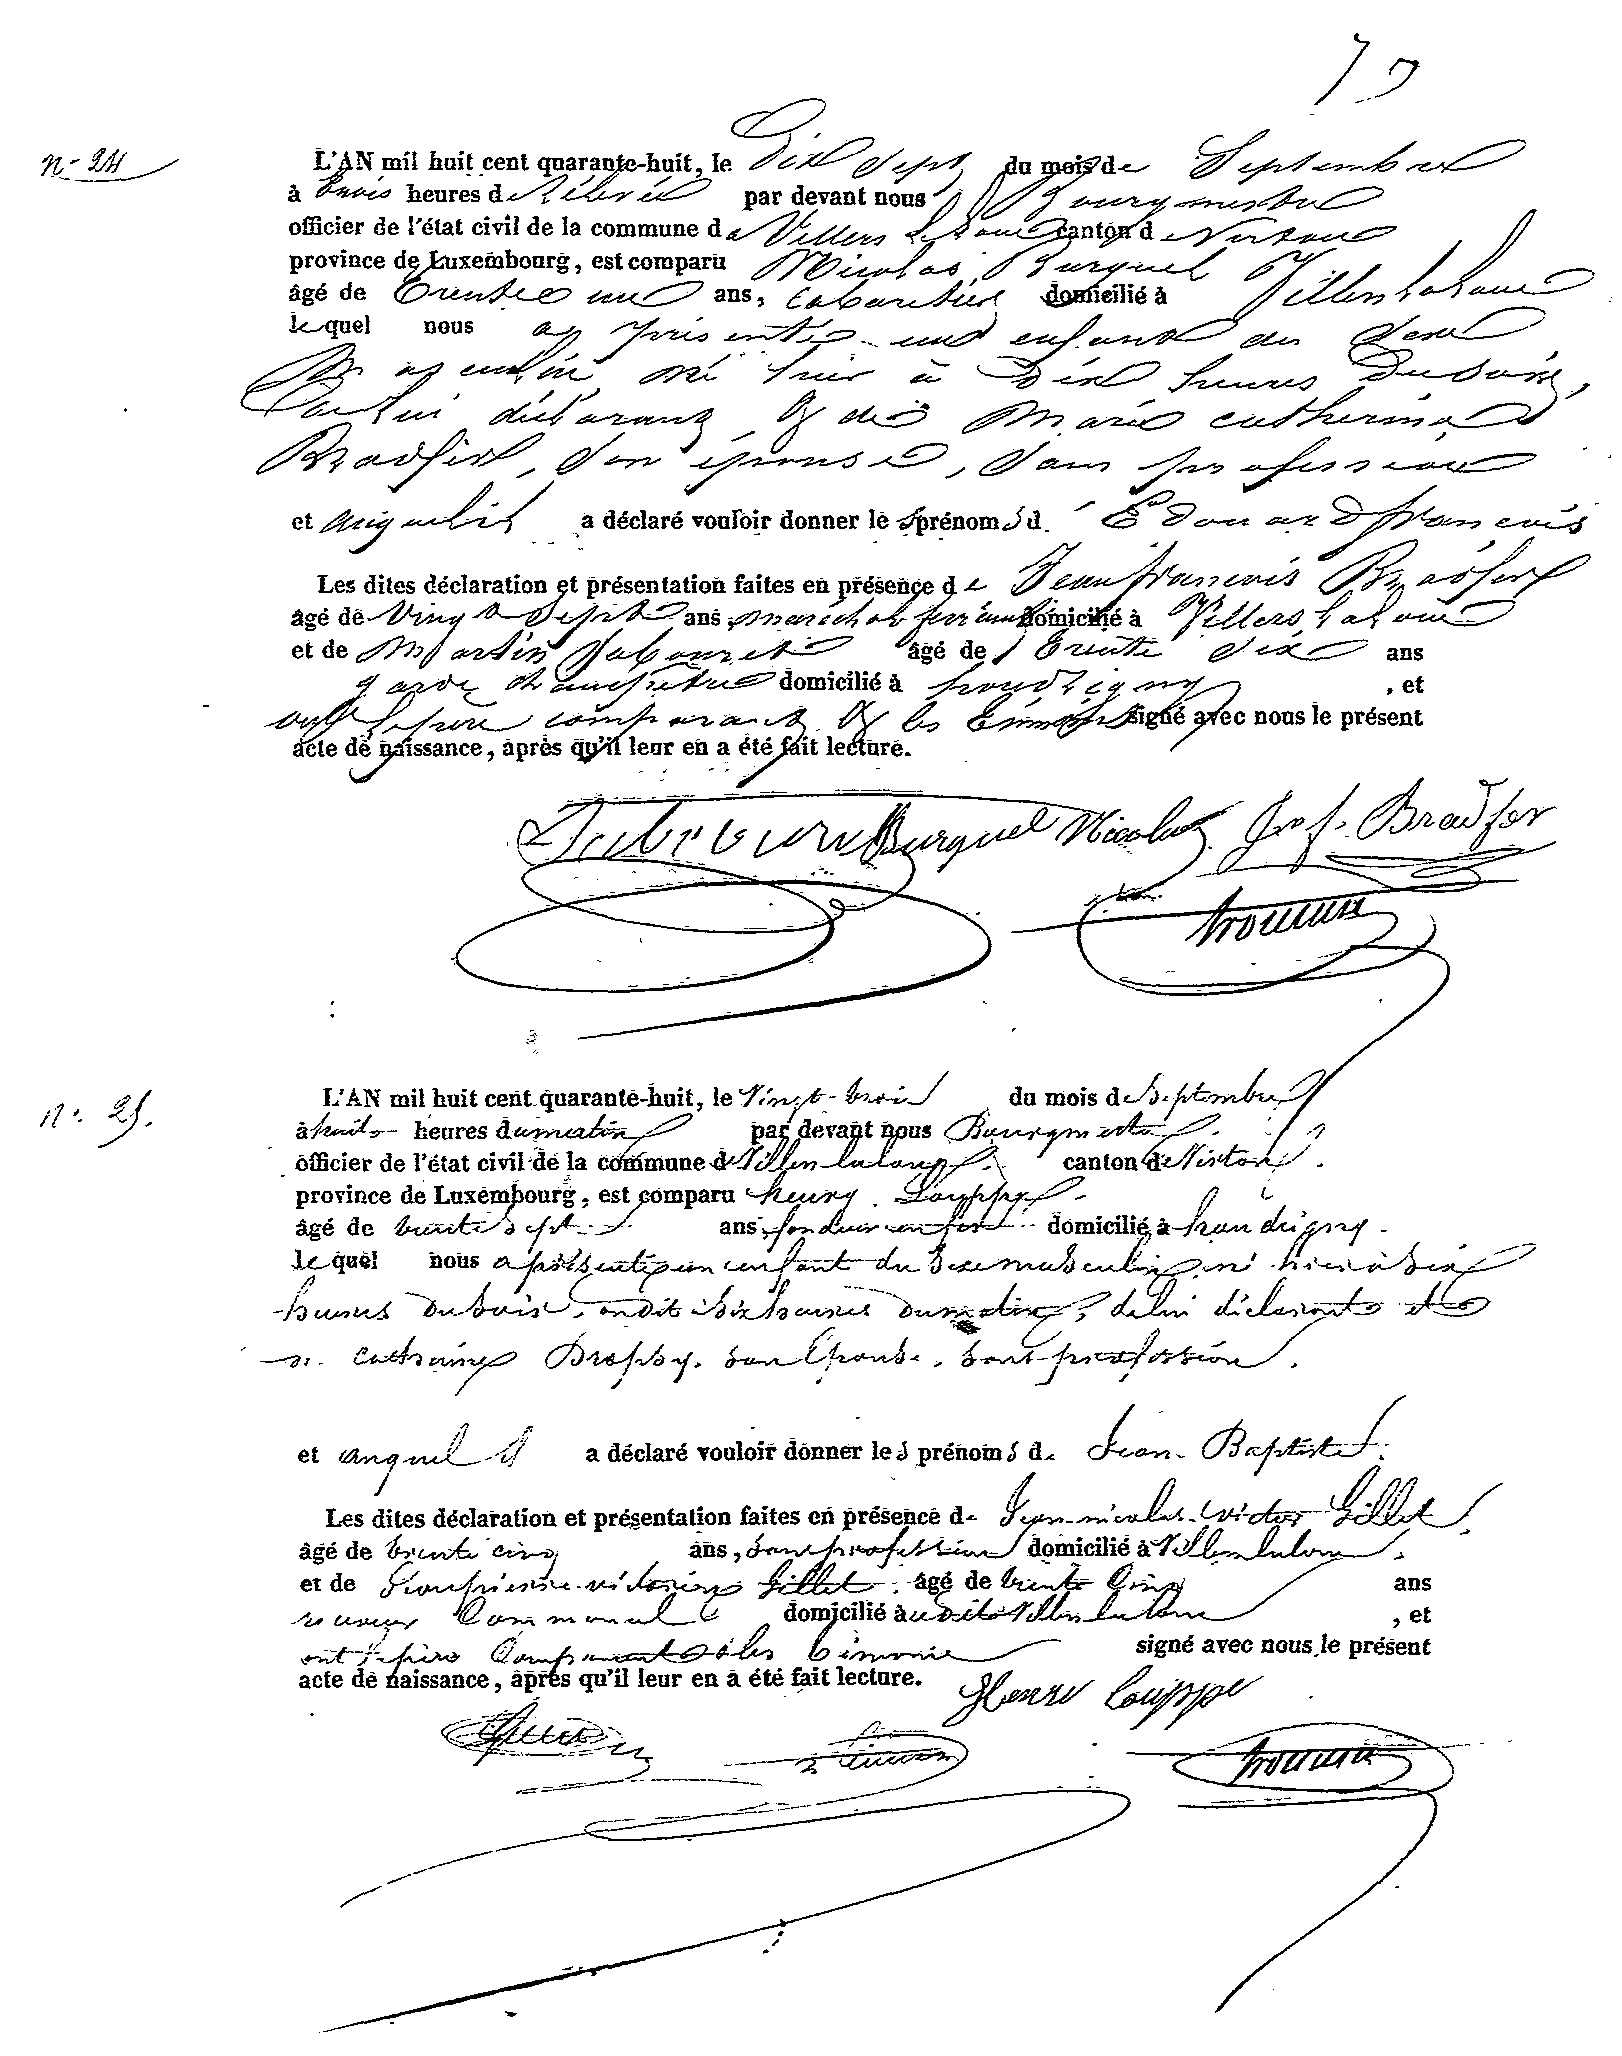 n° 24
L'AN mil huit cent quarante-huit, le Dix sept du mois de Septembre
à trois heures de relevée par devant nous Bourgmestre
officier de l'état civil de la commune de Villers la loue canton de Virton
province de Luxembourg, est comparu Nicolas Burquel
âgé de trente un ans, cabaretier domicilié à Villers la loue
lequel nous a présenté un enfant du sexe
masculin né hier à Dix heures du soir,
de lui déclarant & de Marie catherine
Bradfer, son épouse, sans profession
et auquel il a déclaré vouloir donner les prénoms d' Edouard françois
Les dites déclaration et présentation faites en présence de Jean françois Bradfer
âgé de vingt sept ans marechal ferrant domicilié à Villers la loue
et de Martin âgé de trente six ans
garde champêtre domicilié à houdrigny , et
ont le père comparant & les témoins signé avec nous le présent
acte de naissance, après qu'il leur en a été fait lecture.
Burquel Nicolas J. f. Bradfer
n° 25.
L'AN mil huit cent quarante-huit, le Vingt-trois du mois de Septembre
à huit heures du matin par devant nous Bourgmestre
officier de l'état civil de la commune de Villers la loue canton de Virton.
province de Luxembourg, est comparu henry Louppe.
âgé de trente sept ans, fondeur en fer domicilié à houdrigny.
lequel nous a présenté un enfant du sexe masculin, né hier à six
heures du soir, on dit six heures du matin, de lui déclarant et
de catherine son Epouse, sans profession.
et auquel il a déclaré vouloir donner les prénoms de Jean-Baptiste.
Les dites déclaration et présentation faites en présence de Jean-nicolas-victor Gillet,
âgé de trente cinq ans, sans profession domicilié à Villers la loue.
et de Jean pierre Gillet. âgé de trente cinq ans
receveur Communal domicilié audit Villers la loue , et
ont le père Comparant & les témoins signé avec nous le présent
acte de naissance, après qu'il leur en a été fait lecture.
Henri Louppe